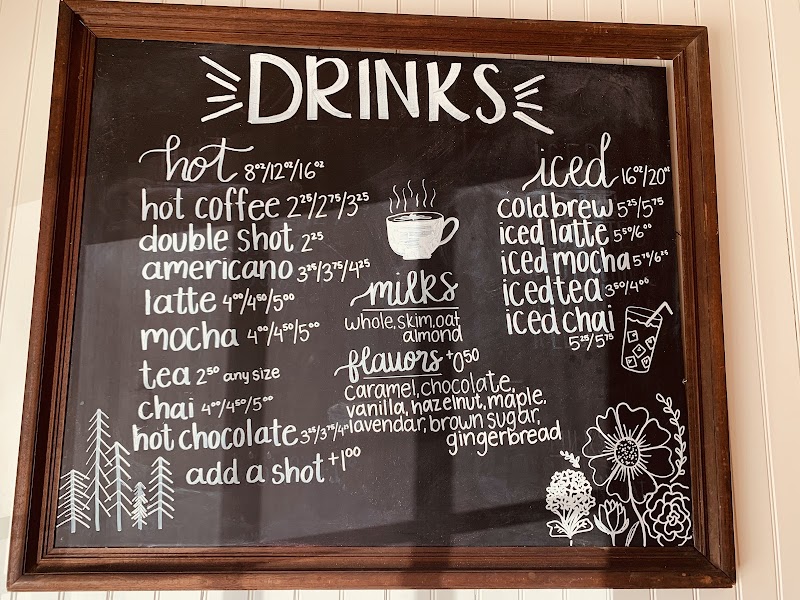 DRINKS
hot 8oz/12oz/16oz
hot coffee 2²⁵/2⁷⁵/3²⁵
double shot 2²⁵
americano 3²⁵/3⁷⁵/4²⁵
latte 4⁰⁰/4⁵⁰/5⁰⁰
mocha 4⁰⁰/4⁵⁰/5⁰⁰
tea 2⁵⁰ any size
chai 4⁰⁰/4⁵⁰/5⁰⁰
hot chocolate 3²⁵/3⁷⁵/4
add a shot +1⁰⁰
milks
whole, skim, oat
almond
flavors +0.50
caramel, chocolate,
vanilla, hazelnut, maple,
lavendar, brown sugar,
gingerbread
iced 16oz/20oz
cold brew 5²⁵/5⁷⁵
iced latte 5⁵⁰/6⁰⁰
iced mocha 5⁷⁵/6²⁵
iced tea 3⁵⁰/4⁰⁰
iced chai
5²⁵/5⁷⁵